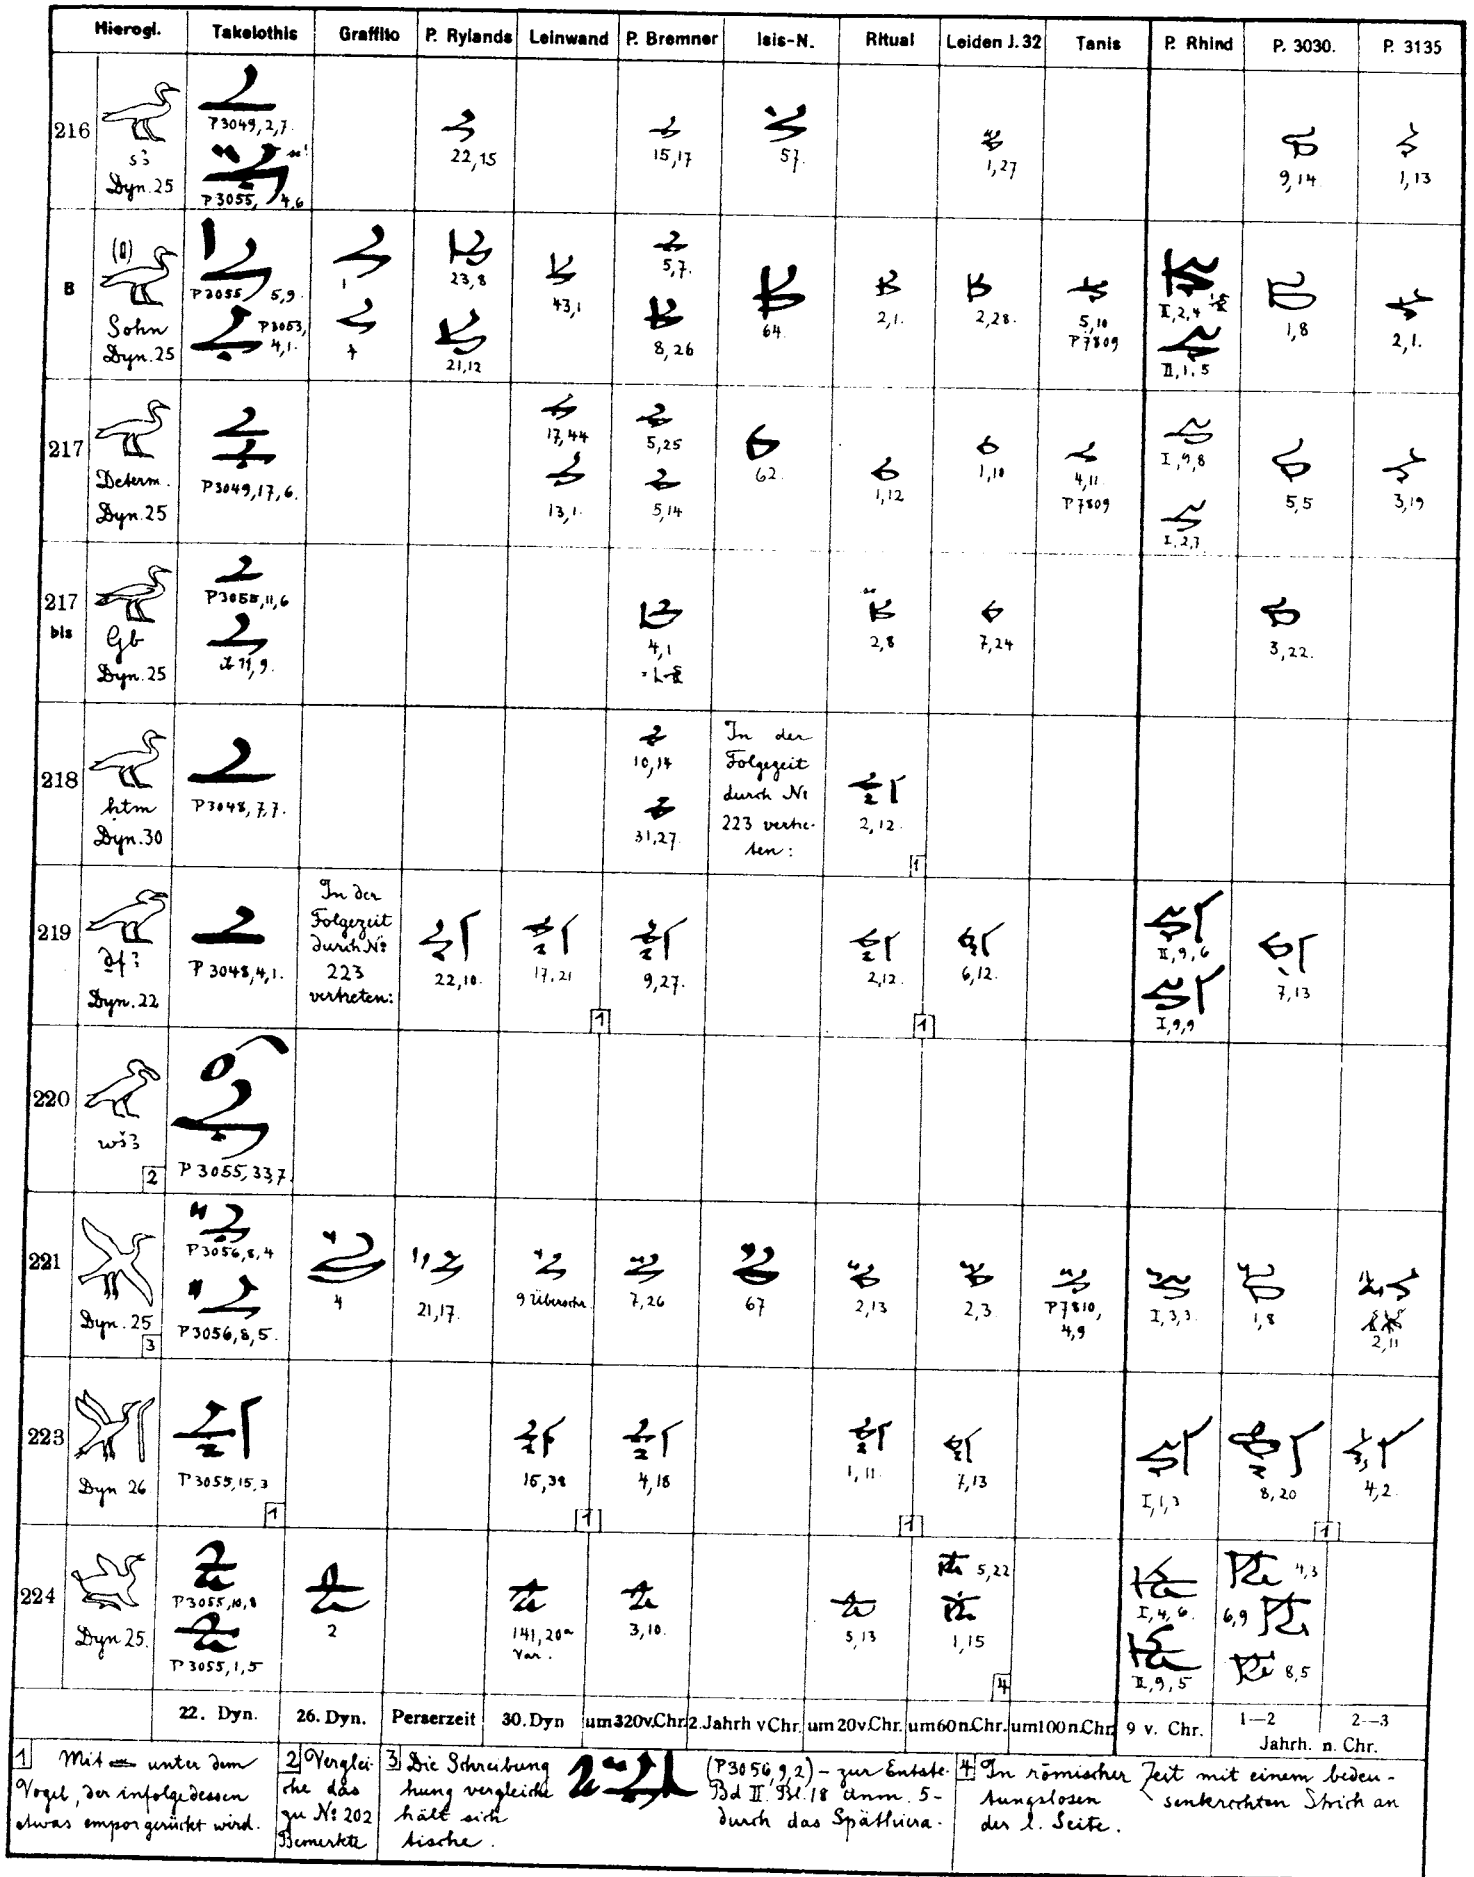 Hierogl. Takelothis Graffito P. Rylands Leinwand P. Bremner Isis-N. Ritual Leiden J.32 Tanis P. Rhind P. 3030. P. 3135
216 s3 Dyn. 25 P3049,2,7. P3055, 4,6 22,15 15,17 57. 1,27 9,14 1,13
B (𓏤) Sohn Dyn. 25 P3055, 5,9. P3053, 4,1. 1 4 23,8 21,12 43,1 5,7. 8,26 64. 2,1. 2,28. 5,10 P7809 II,2,4 II,1,5 1,8 2,1.
217 Determ. Dyn. 25 P3049,17,6. 17,44 13,1. 5,25 5,14 62. 1,12 1,10 4,11. P7809 I,9,8 I,2,7 5,5 3,19
217 bis Gb Dyn. 25 P3055,11,6 ib 11,9. 4,1 2,8 7,24 3,22.
218 htm Dyn. 30 P3048,7,7. 10,14 31,27.
In der
Folgezeit
durch No
223 vertre-
ten:
2,12.
1
219 df3 Dyn. 22 P3048,4,1.
In der
Folgezeit
durch No
223
vertreten:
22,10. 17,21 9,27. 2,12. 6,12. II,9,6 I,9,9 7,13
1 1
220 wš3 2 P3055,33,7.
221 Dyn. 25 3 P3056,8,4 P3056,8,5. 4 21,17. 9 Überschr. 7,26 67 2,13 2,3. P7810, 4,9 I,3,3. 1,8 2,11
223 Dyn 26 P3055,15,3 15,38 4,18 1,11. 7,13 I,1,3 8,20 4,2.
1 1 1 1
224 Dyn 25. P3055,10,8 P3055,1,5 2 141,20a Var. 3,10. 5,13 5,22 1,15 I,4,6. II,9,5 4,3 6,9 8,5
4
22. Dyn. 26. Dyn. Perserzeit 30. Dyn um320v.Chr. 2.Jahrh vChr. um 20v.Chr. um60n.Chr. um100n.Chr 9 v. Chr. 1—2 2—3
Jahrh. n. Chr.
1 Mit unter dem
Vogel, der infolgedessen
etwas emporgerückt wird.
2 Verglei-
che das
zu No 202
Bemerkte
3 Die Schreibung (P3056,9,2) – zur Entste-
hung vergleiche Bd II. Bl. 18 Anm. 5–
hält sich durch das Späthiera-
tische.
4 In römischer Zeit mit einem bedeu-
tungslosen senkrechten Strich an
der l. Seite.